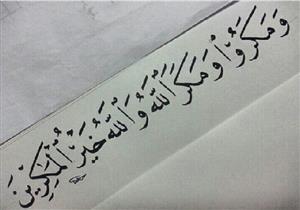 وَمَكَرُوا۟ وَمَكَرَ ٱللَّهُ وَٱللَّهُ خَيْرُ ٱلْمَٰكِرِينَ